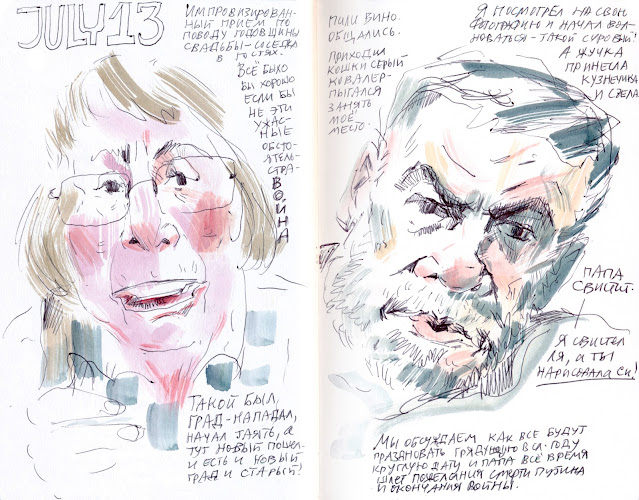 JULY 13
ИМПРОВИЗИРОВАН-
НЫЙ ПРИЁМ ПО
ПОВОДУ ГОДОВЩИНЫ
СВАДЬБЫ - СОСЕДКА
В ГОСТЯХ.
ВСЁ БЫЛО
БЫ ХОРОШО
ЕСЛИ БЫ
НЕ ЭТИ
УЖАС-
НЫЕ
ОБСТО-
ЯТЕЛЬ-
СТВА-
ВОЙНА
ТАКОЙ БЫЛ,
ГРАД-НАПАДАЛ,
НАЧАЛ ТАЯТЬ, А
ТУТ НОВЫЙ ПОШЕЛ-
И ЕСТЬ И НОВЫЙ
ГРАД И СТАРЫЙ!
ПИЛИ ВИНО.
ОБЩАЛИСЬ.
ПРИХОДИЛ
КОШКИ СЕРЫЙ
КОВАЛЕР-
ПЫТАЛСЯ
ЗАНЯТЬ
МОЁ
МЕСТО.
Я ПОСМОТРЕЛ НА СВОЮ
ФОТОГРАФИЮ И НАЧАЛ ВОЛ-
НОВАТЬСЯ - ТАКОЙ СУРОВЫЙ!
А ЖУЧКА
ПРИНЕСЛА
КУЗНЕЧИКА
И СЪЕЛА
ПАПА
СВИСТИТ.
Я СВИСТЕЛ
ЛЯ, А ТЫ
НАРИСОВАЛА СИ!
МЫ ОБСУЖДАЕМ КАК ВСЕ БУДУТ
ПРАЗНОВАТЬ ГРЯДУЩУЮ В СЛ. ГОДУ
КРУГЛУЮ ДАТУ И ПАПА ВСЁ ВРЕМЯ
ШЛЕТ ПОЖЕЛАНИЯ СМЕРТИ ПУТИНА
И ОКОНЧАНИЯ ВОЙНЫ.